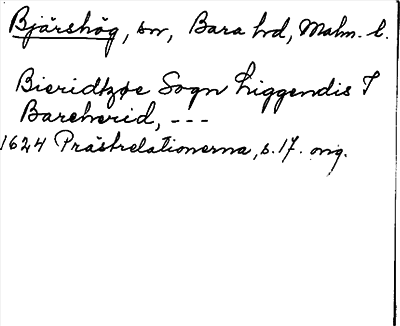 Bjärshög, sn, Bara hd, Malm. l.
Bieridtzøe Sogn liggendis I
Bareherid, ---
1624 Prästrelationerna, s. 17. orig.